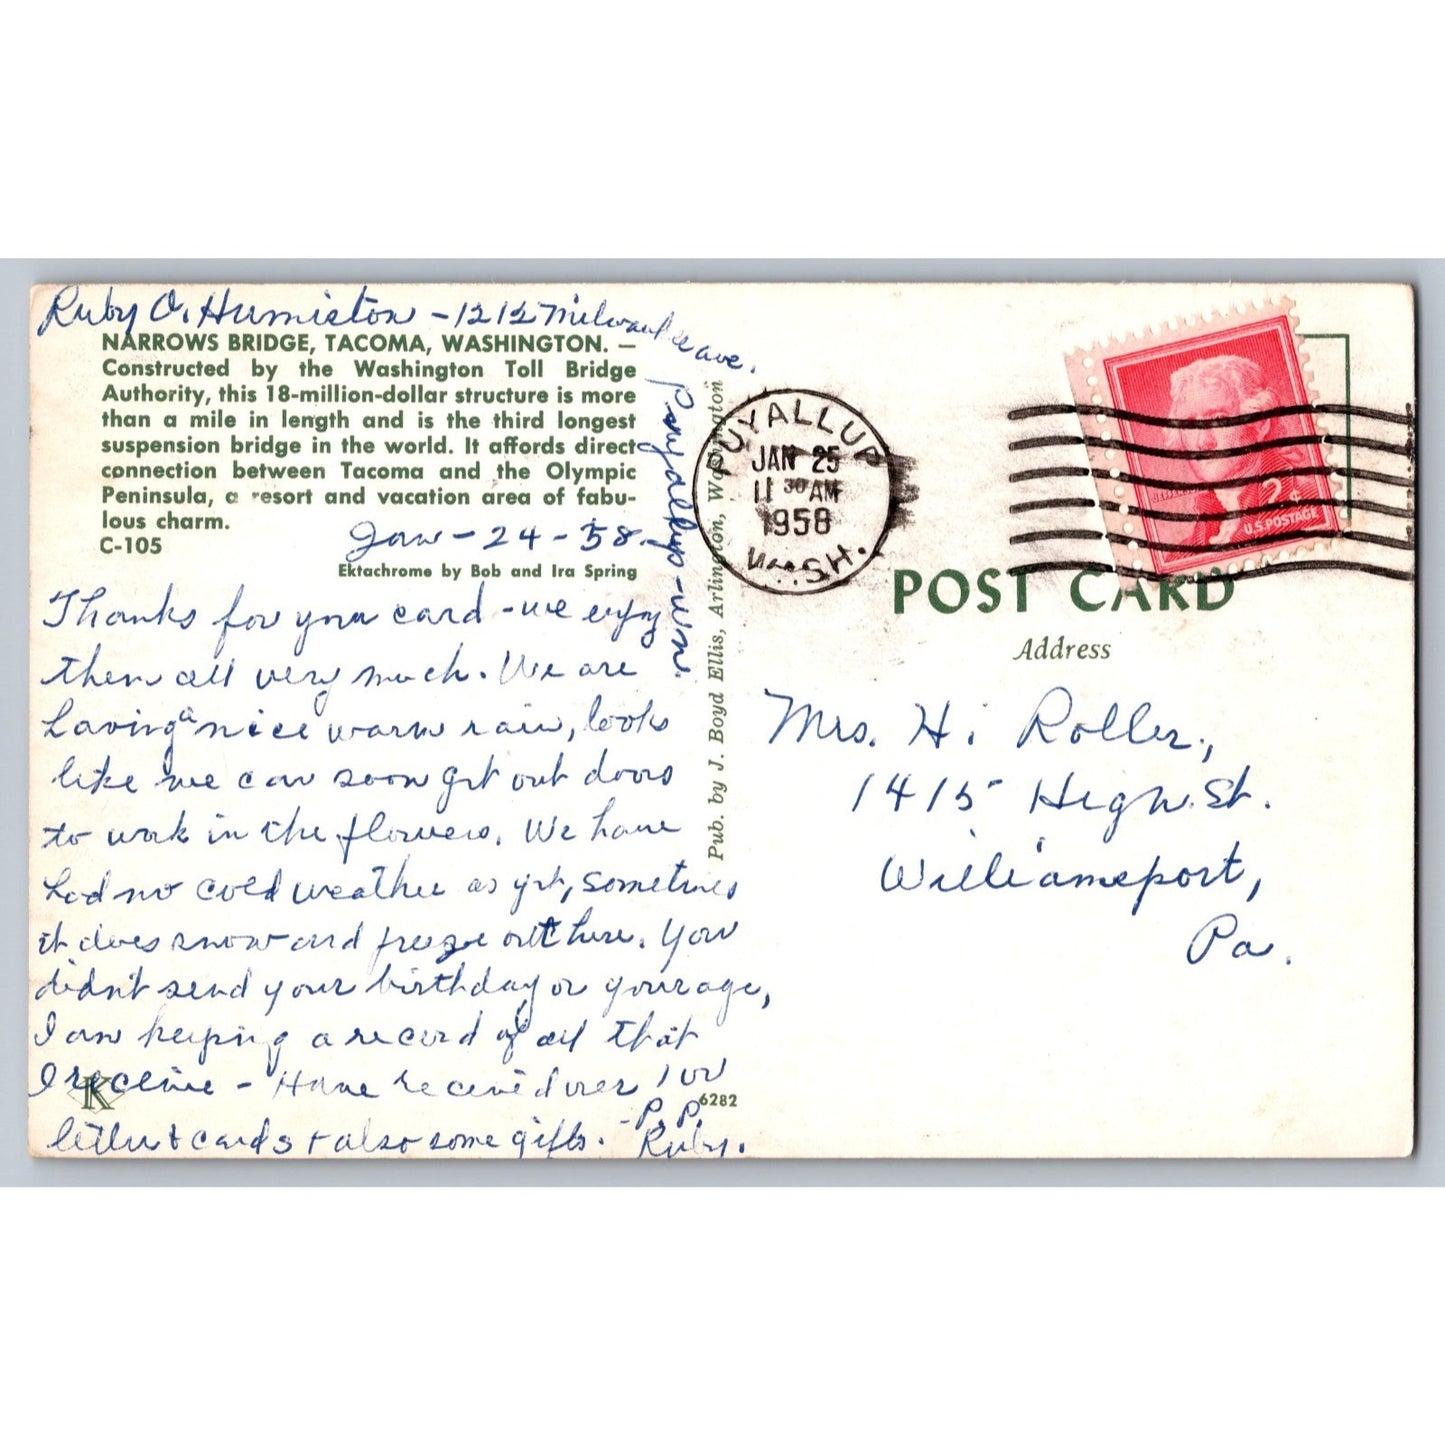 Ruby O. Humiston - 1212 Milwaukee ave.
Puyallup - Wn.
NARROWS BRIDGE, TACOMA, WASHINGTON. —
Constructed by the Washington Toll Bridge
Authority, this 18-million-dollar structure is more
than a mile in length and is the third longest
suspension bridge in the world. It affords direct
connection between Tacoma and the Olympic
Peninsula, a resort and vacation area of fabu-
lous charm.
C-105
Jan - 24 - 58.
Ektachrome by Bob and Ira Spring
Thanks for your card - we enjoy
them all very much. We are
having a nice warm rain, looks
like we can soon get out doors
to work in the flowers. We have
had no cold weather as yet, sometimes
it does snow and freeze out here. You
didn't send your birthday or your age,
I am keeping a record of all that
I receive - Have received over 100
letters & cards & also some gifts. - P.P.
Ruby.
K
6282
Pub. by J. Boyd Ellis, Arlington, Washington
PUYALLUP
JAN 25
11 30 AM
1958
WASH.
2¢
U.S. POSTAGE
POST CARD
Address
Mrs. H. Roller,
1415 High St.
Williamsport,
Pa.